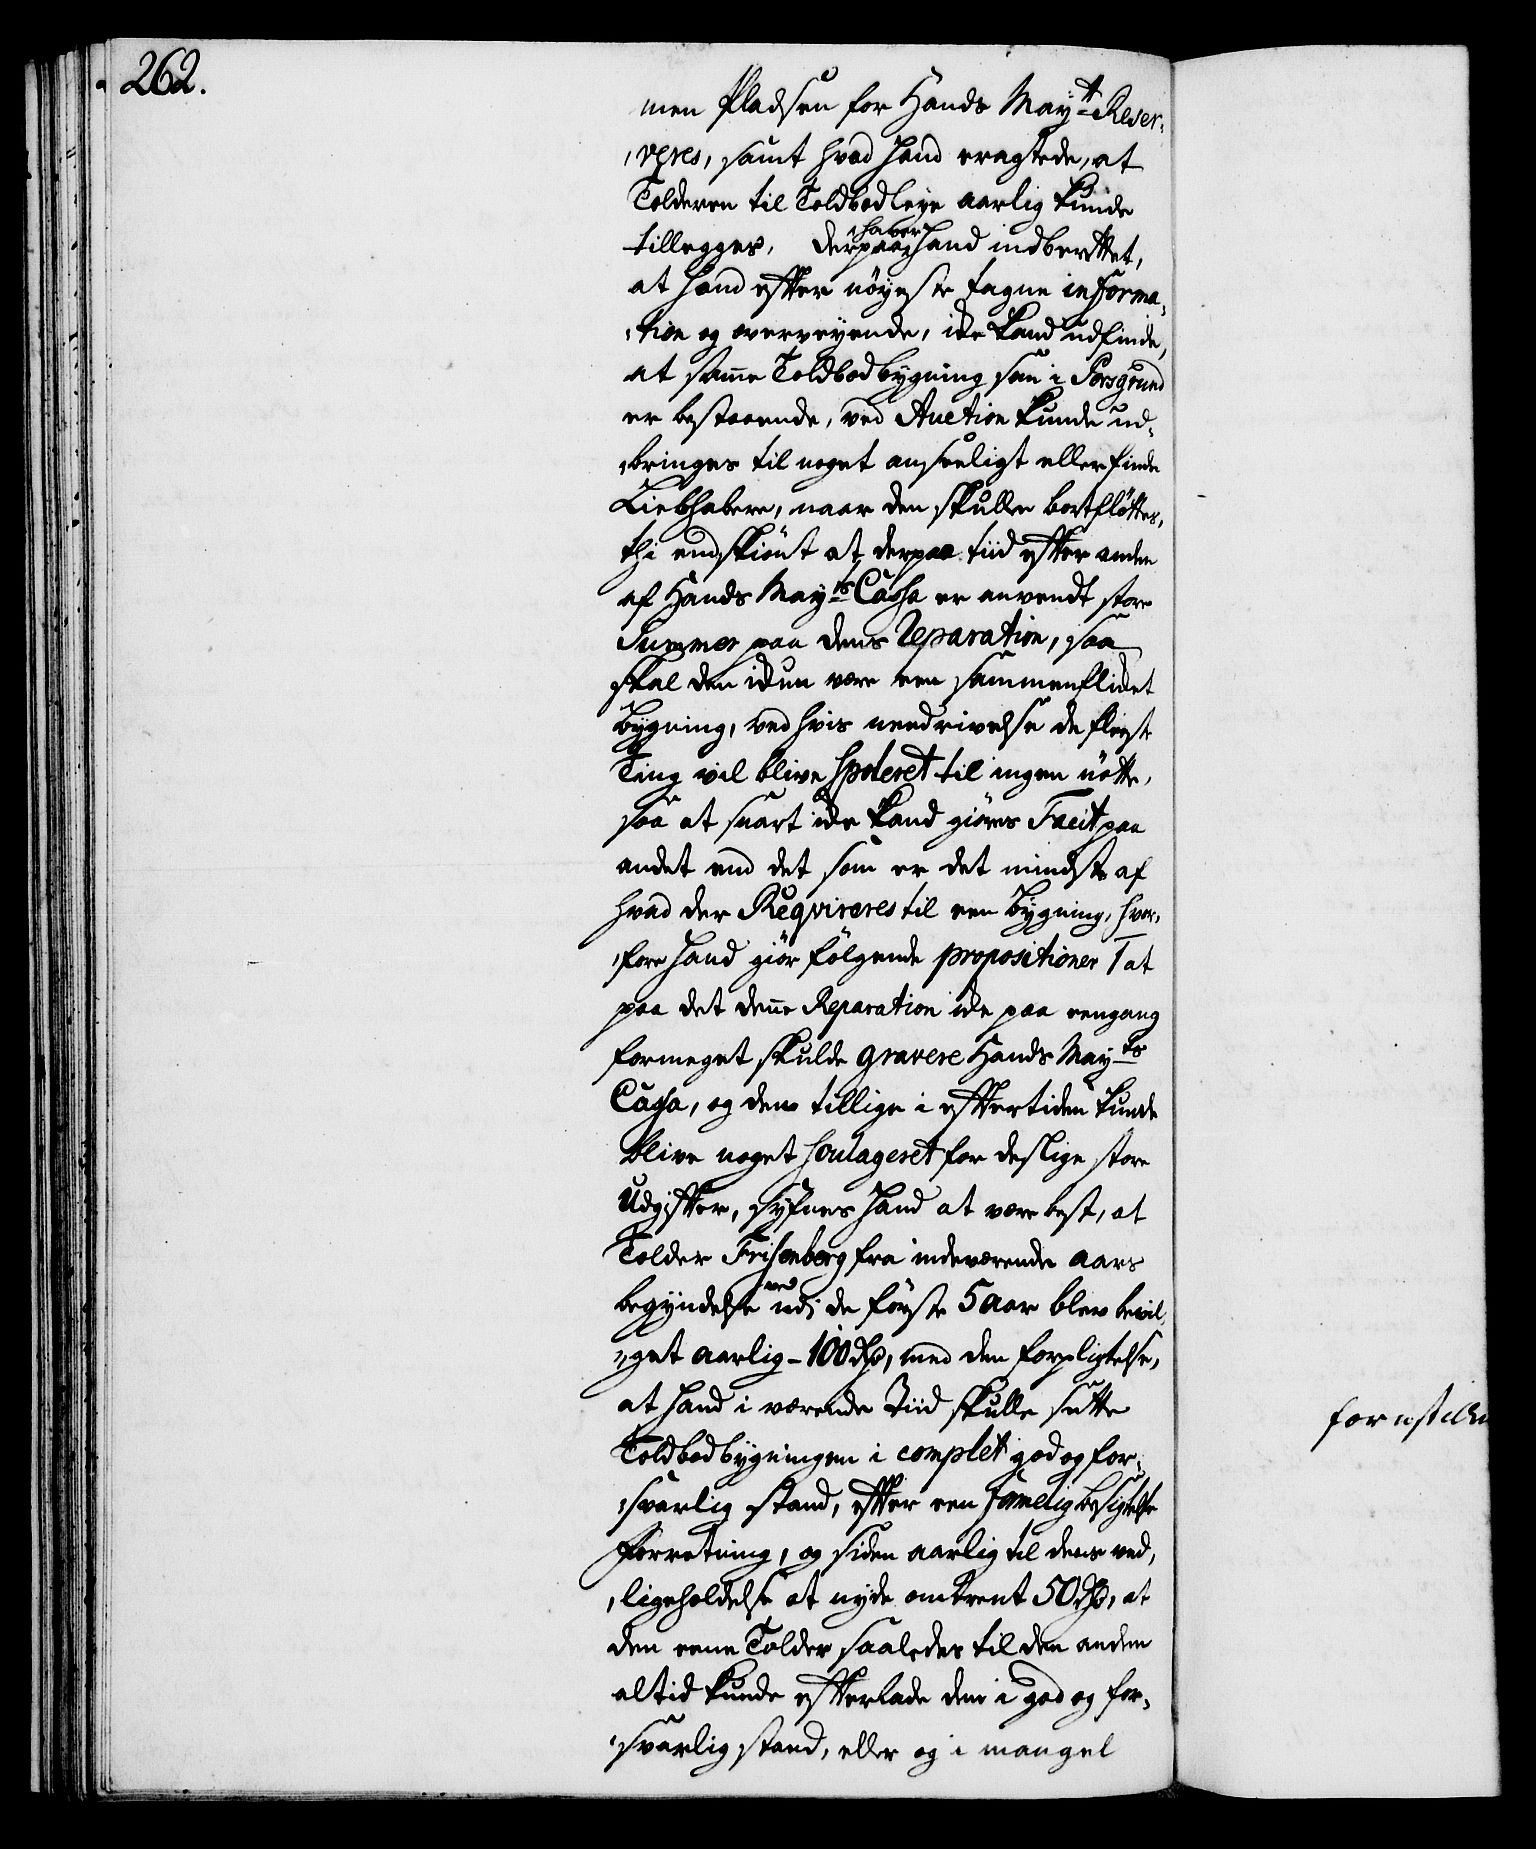 262.
men Pladsen for Hands May.tt Reser-
veres, samt hvad hand eragtede, at
Tolderen til Toldbodleye aarlig kunde
tillegges, derpaa haver hand indberettet,
at hand efter nöyeste tagne informa-
tion og overveyende, icke kand udfinde,
at samme Toldbodbygning som i Porsgrund
er bestaaende, ved Auction kunde ud-
bringes til noget anseeligt eller finde
Liebhabere, naar den skulle bortflöttes,
thi endskiönt at derpaa tiid efter anden
af Hands May.ts Cassa er anvendt store
Summer paa dens Reparation, saa
skal den ickun være een sammenflicket
Bygning, ved hvis needrivelse de fleeste
Ting vil blive spoleret til ingen nötte,
saa at snart icke kand giöres Facit paa
andet end det som er det mindste af
hvad der Reqvireres til een bygning, hvor-
fore hand giör fölgende propositioner 1 at
paa det denne Reparation icke paa eengang
formeget skulde gravere Hands May.ts
Cassa, og den tillige i eftertiden kunde
blive noget soulageret for deslige store
Udgifter, syfnes hand at være best, at
Tolder Frisenberg fra indeværende aars
begyndelse ved udi de förste 5 aar blev bevil-
get aarlig - 100 Rdr, med den forpligtelse,
at hand i værende Tiid skulle sette
Toldbodbygningen i complet god og for-
svarlig stand, efter een lovelig besigtelse
Forretning, og siden aarlig til dens ved-
ligeholdelse at nyde omtrent 50 Rdr, at
den eene Tolder saaledes til den anden
altid kunde efterlade den i god og for-
svarlig stand, eller og i mangel